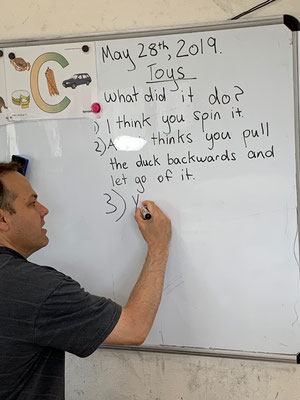 C
May 28th, 2019.
Toys
What did it do?
1) I think you spin it.
2) thinks you pull
the duck backwards and
let go of it.
3)